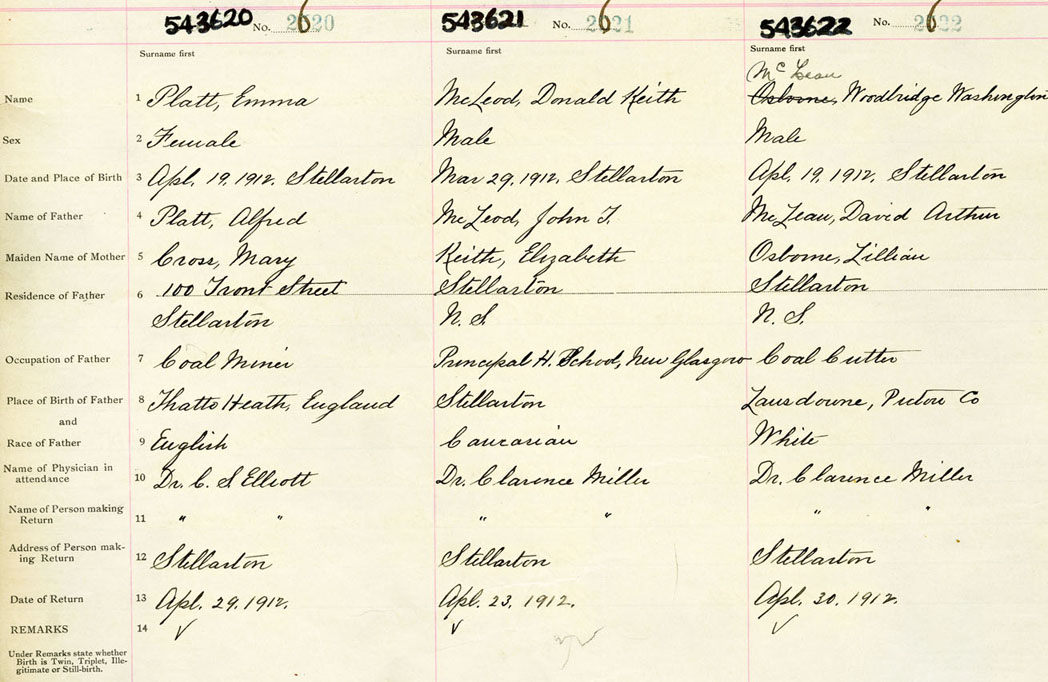 543620 No. 2020 6 543621 No. 2021 6 543622 No. 2022 6
Surname first Surname first Surname first
McLean
Name 1 Platt, Emma McLeod, Donald Keith Osborne, Woodbridge Washington
Sex 2 Female Male Male
Date and Place of Birth 3 Apl. 19. 1912. Stellarton Mar 29. 1912. Stellarton Apl. 19. 1912. Stellarton
Name of Father 4 Platt, Alfred McLeod, John T. McLean, David Arthur
Maiden Name of Mother 5 Cross, Mary Keith, Elizabeth Osborne, Lillian
Residence of Father 6 100 Front Street Stellarton Stellarton
Stellarton N. S. N. S.
Occupation of Father 7 Coal Miner Principal H. School, New Glasgow Coal Cutter
Place of Birth of Father 8 Thatto Heath, England Stellarton Lansdowne, Pictou Co
and
Race of Father 9 English Caucasian White
Name of Physician in
attendance 10 Dr. C. S Elliott Dr. Clarence Miller Dr. Clarence Miller
Name of Person making
Return 11 " " " " " "
Address of Person mak-
ing Return 12 Stellarton Stellarton Stellarton
Date of Return 13 Apl. 29. 1912. Apl. 23. 1912. Apl. 30. 1912.
REMARKS 14
Under Remarks state whether
Birth is Twin, Triplet, Ille-
gitimate or Still-birth.